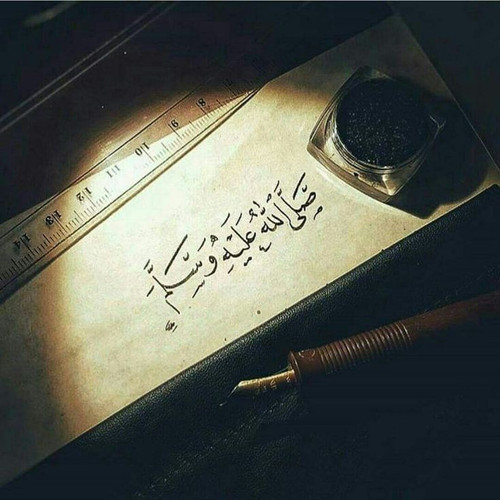 صَلَّى اللهُ عَلَيْهِ وَسَلَّمَ
8 9 10 11 12 13 14